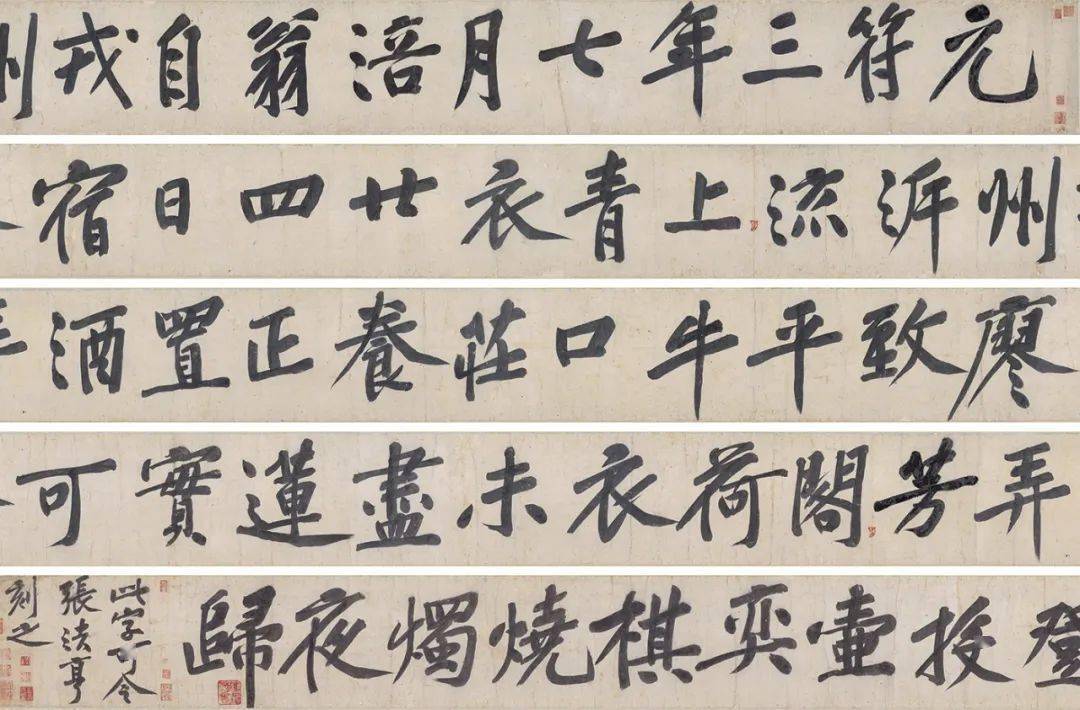 元符三年七月涪翁自戎
州泝流上青衣廿四日宿
廖致平牛口莊養正置酒
弄芳閣荷衣未盡蓮實可
登投壺奕棋燒燭夜歸
此字可令
張法亨
刻之